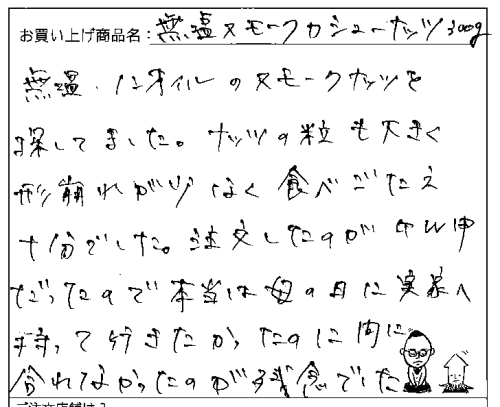 お買い上げ商品名：無塩スモークカシューナッツ300g
無塩・ノンオイルのスモークナッツを
探してました。ナッツの粒も大きく
形崩れが少なく食べごたえ
十分でした。注文したのがGW中
だったので本当は母の日に実家へ
持って行きたかったのに間に
合わなかったのが残念でした